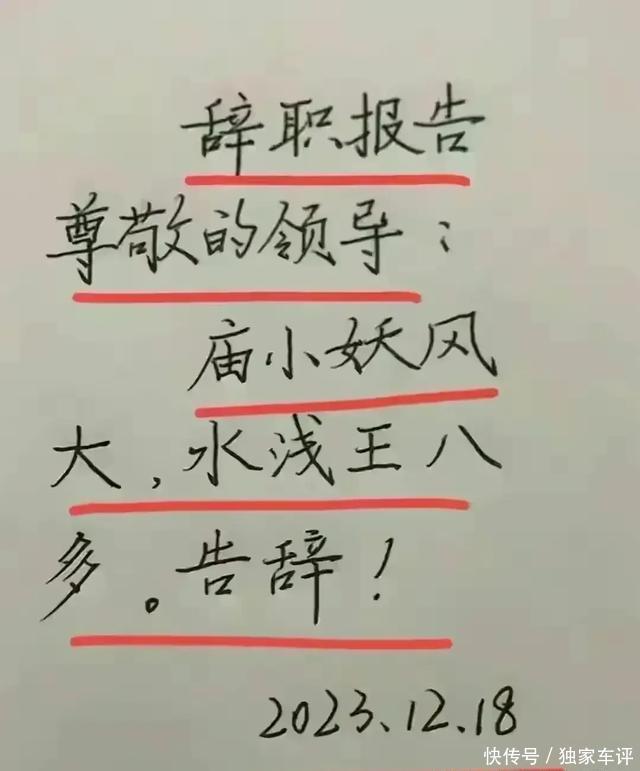 辞职报告
尊敬的领导：
庙小妖风
大，水浅王八
多。告辞！
2023.12.18
快传号/独家车评